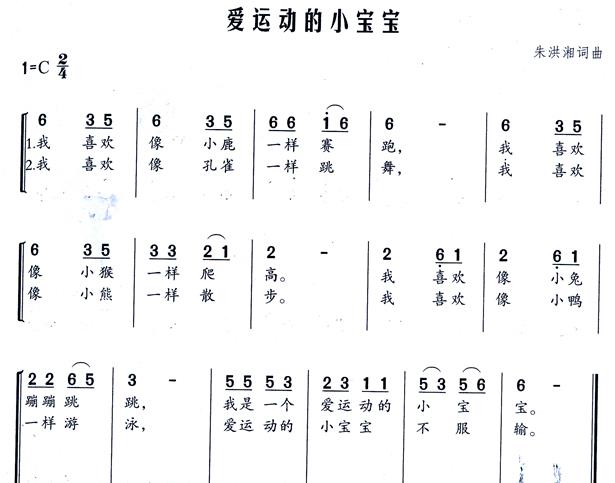 爱运动的小宝宝
1=C 2/4
朱洪湘词曲
6 3 5 6 3 5 6 6 i 6 6 - 6 3 5
1.我 喜欢 像 小鹿 一样 赛 跑， 我 喜欢
2.我 喜欢 像 孔雀 一样 跳 舞， 我 喜欢
6 3 5 3 3 2 1 2 - 2 6 1 2 6 1
像 小猴 一样 爬 高。 我 喜欢 像 小兔
像 小熊 一样 散 步。 我 喜欢 像 小鸭
2 2 6 5 3 - 5 5 5 3 2 3 1 1 5 3 5 6 6 -
蹦蹦跳 跳， 我是一个 爱运动的 小 宝 宝。
一样游 泳， 爱运动的 小宝宝 不 服 输。